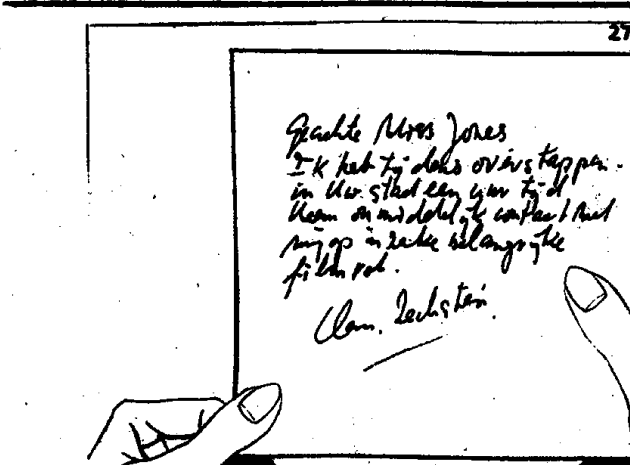 27
Geachte Miss Jones
Ik heb tijdens overstappen
in Uw stad een uur tijd
Neem onmiddelijk contact met
mij op in zake belangrijke
filmrol.
Clem. Zechstein.